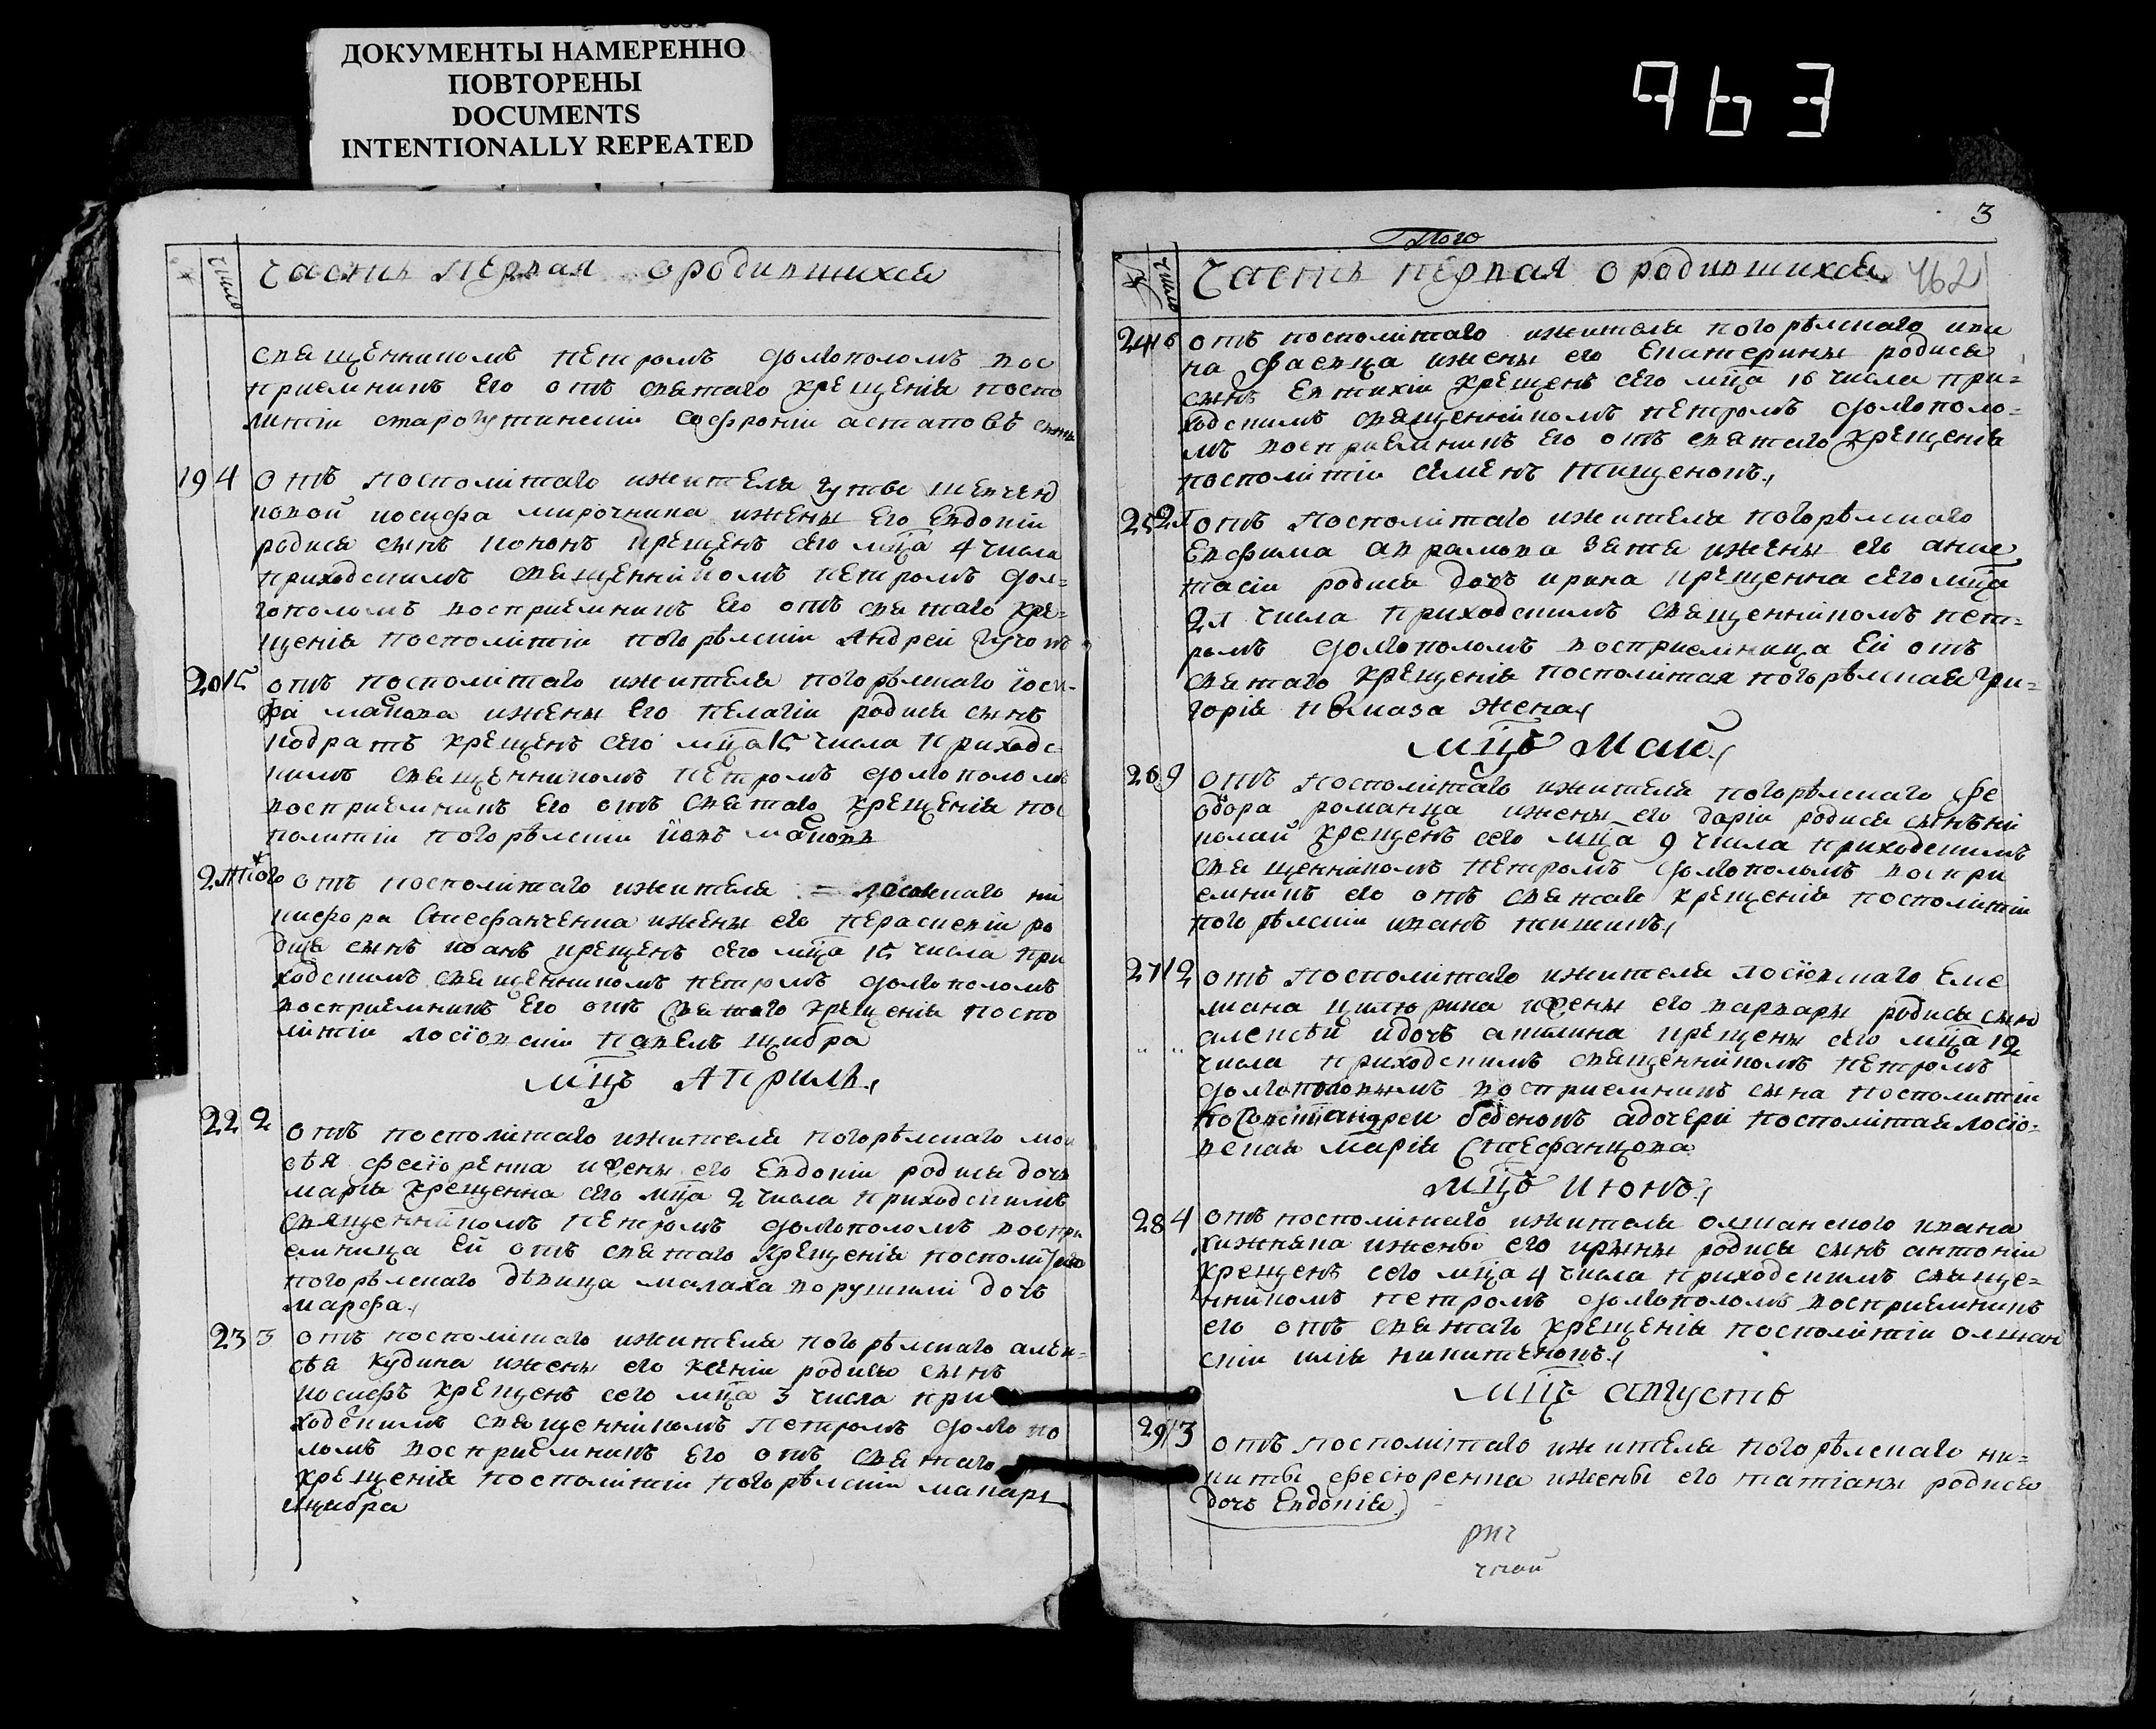 ДОКУМЕНТЫ НАМЕРЕННО
ПОВТОРЕНЫ
DOCUMENTS
INTENTIONALLY REPEATED
963
число
часть первая о родившихся
священникомъ петромъ долгополомъ вос
приемникъ его отъ святаго крещенія поспо
литій старогутинскій софроній астаповъ сынъ
19 4 отъ посполітаго жителя гуты шевчен
ковой иосифа мирочника ижены его евдокіи
родися сынъ кононъ крещенъ сего мца 4 числа
приходскимъ священнікомъ петромъ дол=
гополомъ восприемникъ его отъ святаго кре=
щенія посполітій погорѣлскій Андрей
20 15 отъ посполітаго жителя погорѣлскаго іоси-
фа ижены его пелагіи родися сынъ
кодратъ крещенъ сего мца 15 числа приходс
кимъ священникомъ петромъ долгополомъ
восприемникъ его отъ святаго крещенія пос
политій погорѣлскій
21 того отъ посполітаго жителя = ни
кифора Стесфанченка ижены его параскевіи ро
дися сынъ иоанъ крещенъ сего мца 15 числа при
ходскимъ священникомъ петромъ долгополомъ
восприемникъ его отъ святаго крещенія поспо
літій лосіовскій павелъ щибра
мцъ Априль
22 2 отъ посполітаго жителя погорѣлскаго мои
сѣя ижены его евдокіи родися дочь
марія крещенна сего мца 2 числа приходскимъ
священнікомъ петромъ долгополомъ воспри
емница ей отъ святаго крещенія посполітаго
погорѣлскаго дѣвица малаха дочь
марфа
23 3 отъ посполітаго жителя погорѣлскаго алек-
сѣя кудина ижены его ксеніи родися сынъ
иосифъ крещенъ сего мца 3 числа при
ходскимъ священнікомъ петромъ долгопо
ломъ восприемникъ его отъ святаго
крещенія посполітій погорѣлскій макаръ
щибра
3
того
число
часть первая о родившихся 462
24 16 отъ посполітаго жителя погорѣлскаго ива
на ижены его екатерины родися
сынъ евтихій крещенъ сего мца 16 числа при=
ходскимъ священнікомъ петромъ долгополо=
мъ восприемникъ его отъ святаго крещенія
посполітій семенъ тищенокъ
25 21 отъ посполітаго жителя погорѣлскаго
евфима аврамова зятя ижены его анис
тасіи родися дочь ирина крещенна сего мца
21 числа приходскимъ священнікомъ пет=
ромъ долгополомъ восприемница ей отъ
святаго крещенія посполітая погорѣлская гри=
горія жена
мцъ Май
26 9 отъ посполітаго жителя погорѣлскаго фе
одора романца ижены его даріи родися сынъ ні
колай крещенъ сего мца 9 числа приходскимъ
священнікомъ петромъ долгополомъ воспри
емникъ его отъ святаго крещенія посполітій
погорѣлскій иванъ
27 12 отъ посполітаго жителя лосіовскаго еме
лиана ижены его варвары родися сынъ
алексѣй идочь акилина крещены сего мца 12
числа приходскимъ священнікомъ петромъ
долгополымъ восприемникъ сына посполітій
андрей адочери посполітая лосіо=
вская марія Стесфанцова
мцъ июнь
28 4 отъ посполітаго жителя олшанского ивана
хижняка ижены его ирины родися сынъ антоній
крещенъ сего мца 4 числа приходскимъ свяще=
ннікомъ петромъ долгополомъ восприемникъ
его отъ святаго крещенія посполітій олшан
скій илія никитенокъ
мцъ августъ
29 13 отъ посполітаго жителя погорѣлскаго ни=
киты ижены его татіаны родися
дочь евдокія